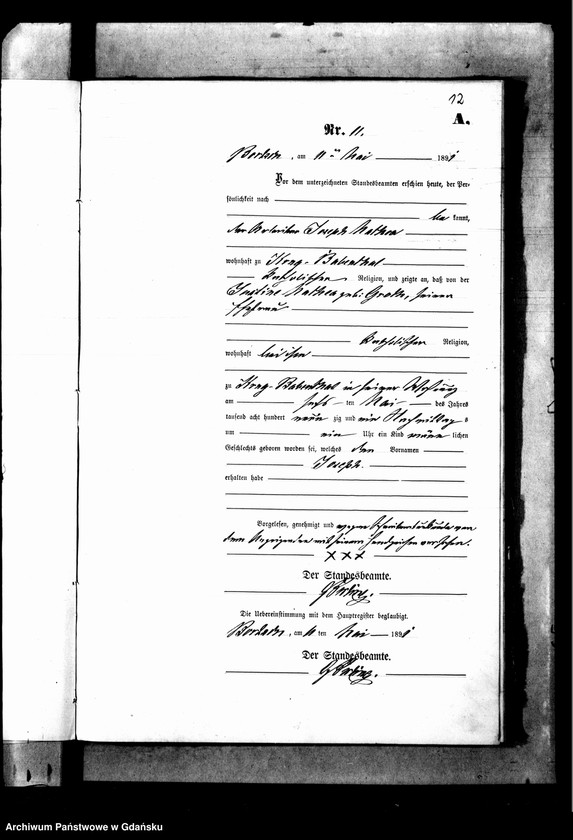 12
A.
Nr. 11.
am 11 ten Mai 1891
Vor dem unterzeichneten Standesbeamten erschien heute, der Per-
sönlichkeit nach
be kannt,
der Joseph
wohnhaft zu Krug-Babenthal
katholischer Religion, und zeigte an, daß von der
Justine geb: seiner
Ehefrau
katholischer Religion,
wohnhaft bei ihm
zu Krug-Babenthal in seiner Wohnung
am sechs ten Mai des Jahres
tausend acht hundert neun zig und ein Nachmittag s
um ein Uhr ein Kind männ lichen
Geschlechts geboren worden sei, welches den Vornamen
Joseph.
erhalten habe
Vorgelesen, genehmigt und wegen von
dem Anzeigenden mit seinem Handzeichen versehen.
XXX
Der Standesbeamte.
Die Uebereinstimmung mit dem Hauptregister beglaubigt.
am 11 ten Mai 1891
Der Standesbeamte.
Archiwum Państwowe w Gdańsku